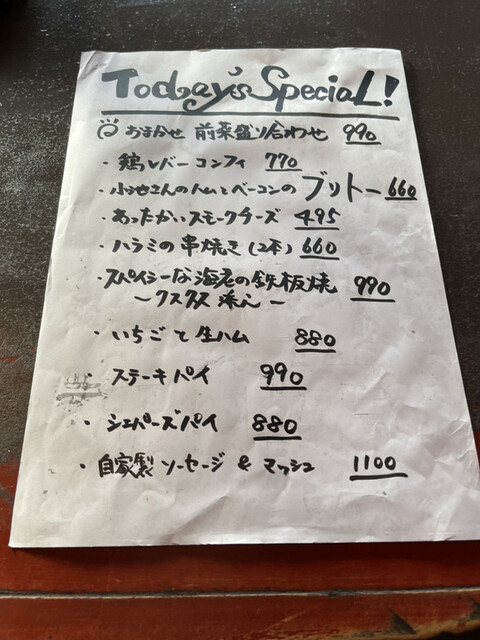 Today's Special!
おまかせ 前菜盛り合わせ 990
・鶏レバーコンフィ 770
・小池さんのハムとベーコンのブリトー 660
・あったかいスモークチーズ 495
・ハラミの串焼き(2本) 660
・スパイシーな海老の鉄板焼 990
〜クスクス添え〜
・いちごと生ハム 880
・ステーキパイ 990
・シェパーズパイ 880
・自家製ソーセージ & マッシュ 1100